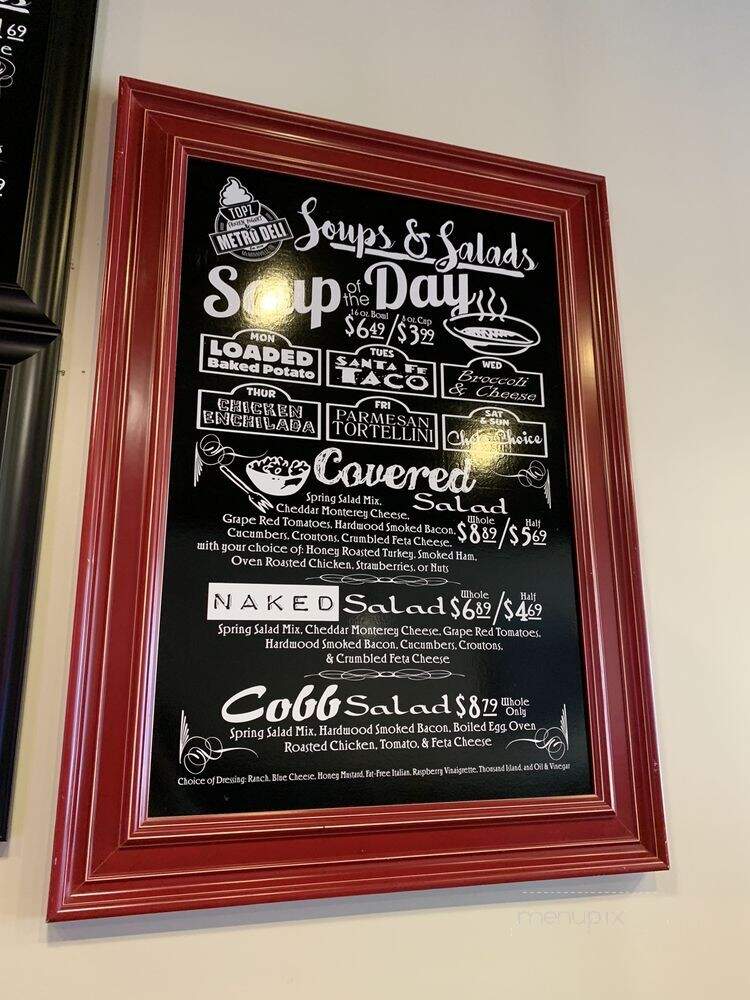 69
e
TOPZ
FROZEN YOGURT
METRO DELI
Soups & Salads
Soup of the Day
16 oz. Bowl 8 oz. Cup
$6.49/$3.99
MON
LOADED
Baked Potato
TUES
SANTA FE
TACO
WED
Broccoli
& Cheese
THUR
CHICKEN
ENCHILADA
FRI
PARMESAN
TORTELLINI
SAT
& SUN
Chef's Choice
Covered
Salad
Spring Salad Mix,
Cheddar Monterey Cheese,
Grape Red Tomatoes, Hardwood Smoked Bacon,
Cucumbers, Croutons, Crumbled Feta Cheese,
with your choice of: Honey Roasted Turkey, Smoked Ham,
Oven Roasted Chicken, Strawberries, or Nuts
Whole Half
$8.89/$5.69
NAKED Salad $6.89/$4.69
Whole Half
Spring Salad Mix, Cheddar Monterey Cheese, Grape Red Tomatoes,
Hardwood Smoked Bacon, Cucumbers, Croutons,
& Crumbled Feta Cheese
Cobb Salad $8.79 Whole Only
Spring Salad Mix, Hardwood Smoked Bacon, Boiled Egg, Oven
Roasted Chicken, Tomato, & Feta Cheese
Choice of Dressing: Ranch, Blue Cheese, Honey Mustard, Fat-Free Italian, Raspberry Vinaigrette, Thousand Island, and Oil & Vinegar
menupix